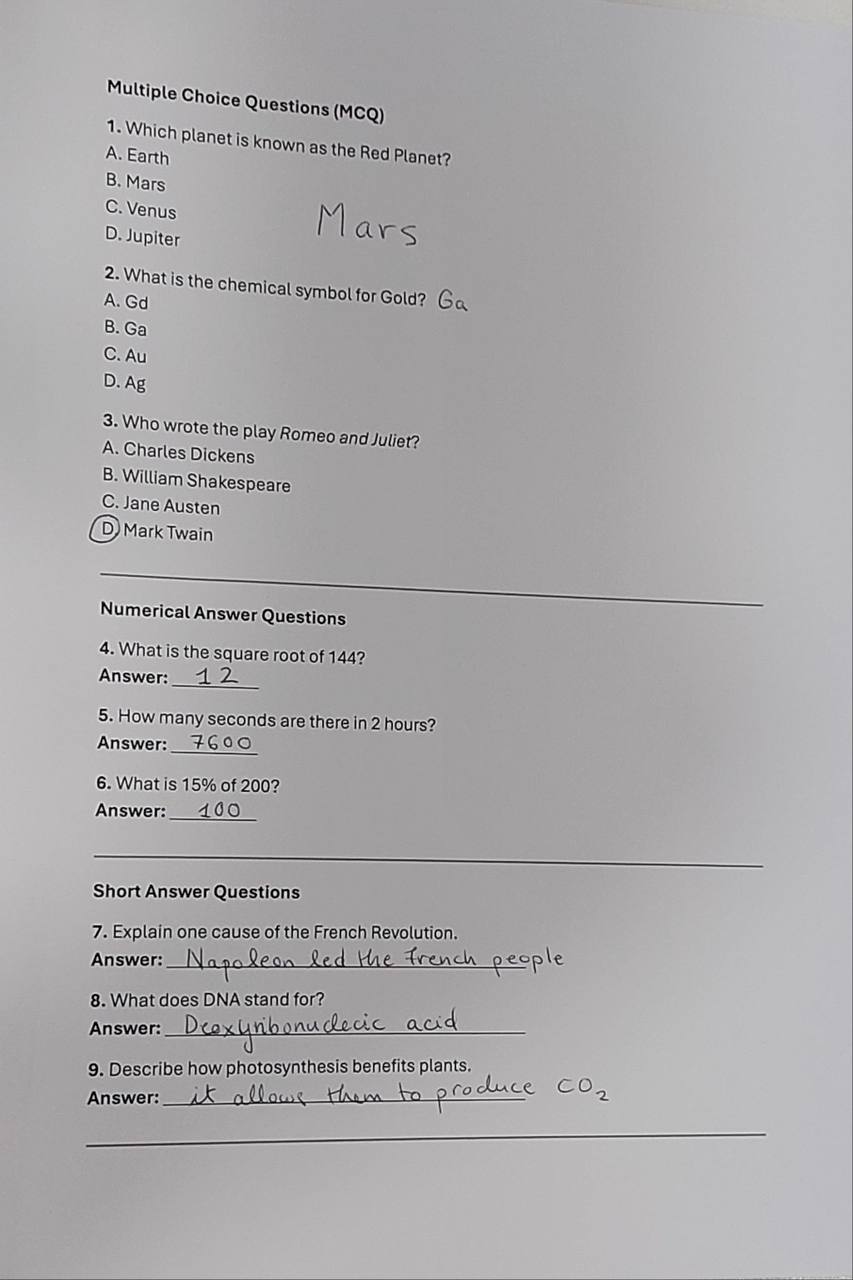 Multiple Choice Questions (MCQ)
1. Which planet is known as the Red Planet?
A. Earth
B. Mars
C. Venus
D. Jupiter
Mars
2. What is the chemical symbol for Gold? Ga
A. Gd
B. Ga
C. Au
D. Ag
3. Who wrote the play Romeo and Juliet?
A. Charles Dickens
B. William Shakespeare
C. Jane Austen
D. Mark Twain
Numerical Answer Questions
4. What is the square root of 144?
Answer: 12
5. How many seconds are there in 2 hours?
Answer: 7600
6. What is 15% of 200?
Answer: 100
Short Answer Questions
7. Explain one cause of the French Revolution.
Answer: Napoleon led the french people
8. What does DNA stand for?
Answer: Deoxyribonuclecic acid
9. Describe how photosynthesis benefits plants.
Answer: it allows them to produce CO₂